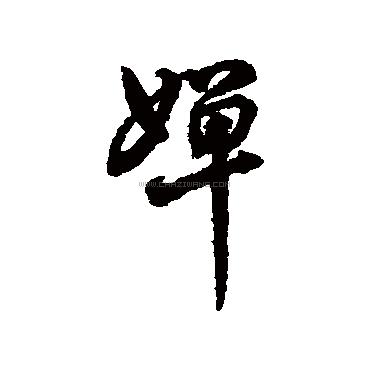 嬋
WWW.CHAZIWANG.COM